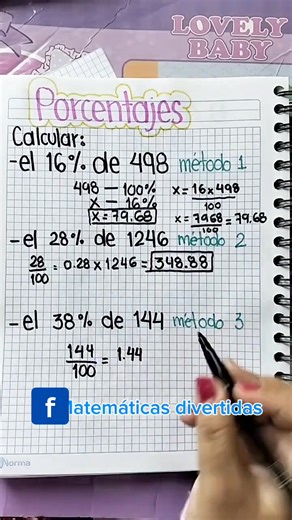 LOVELY
BABY
Porcentajes
Calcular:
-el 16% de 498 método 1
498 — 100%
x — 16%
x = 79.68
x = 16 x 498
100
x = 7968 = 79.68
100
-el 28% de 1246 método 2
28 = 0.28 x 1246 = 348.88
100
-el 38% de 144 método 3
144 = 1.44
100
f Matemáticas divertidas
Norma